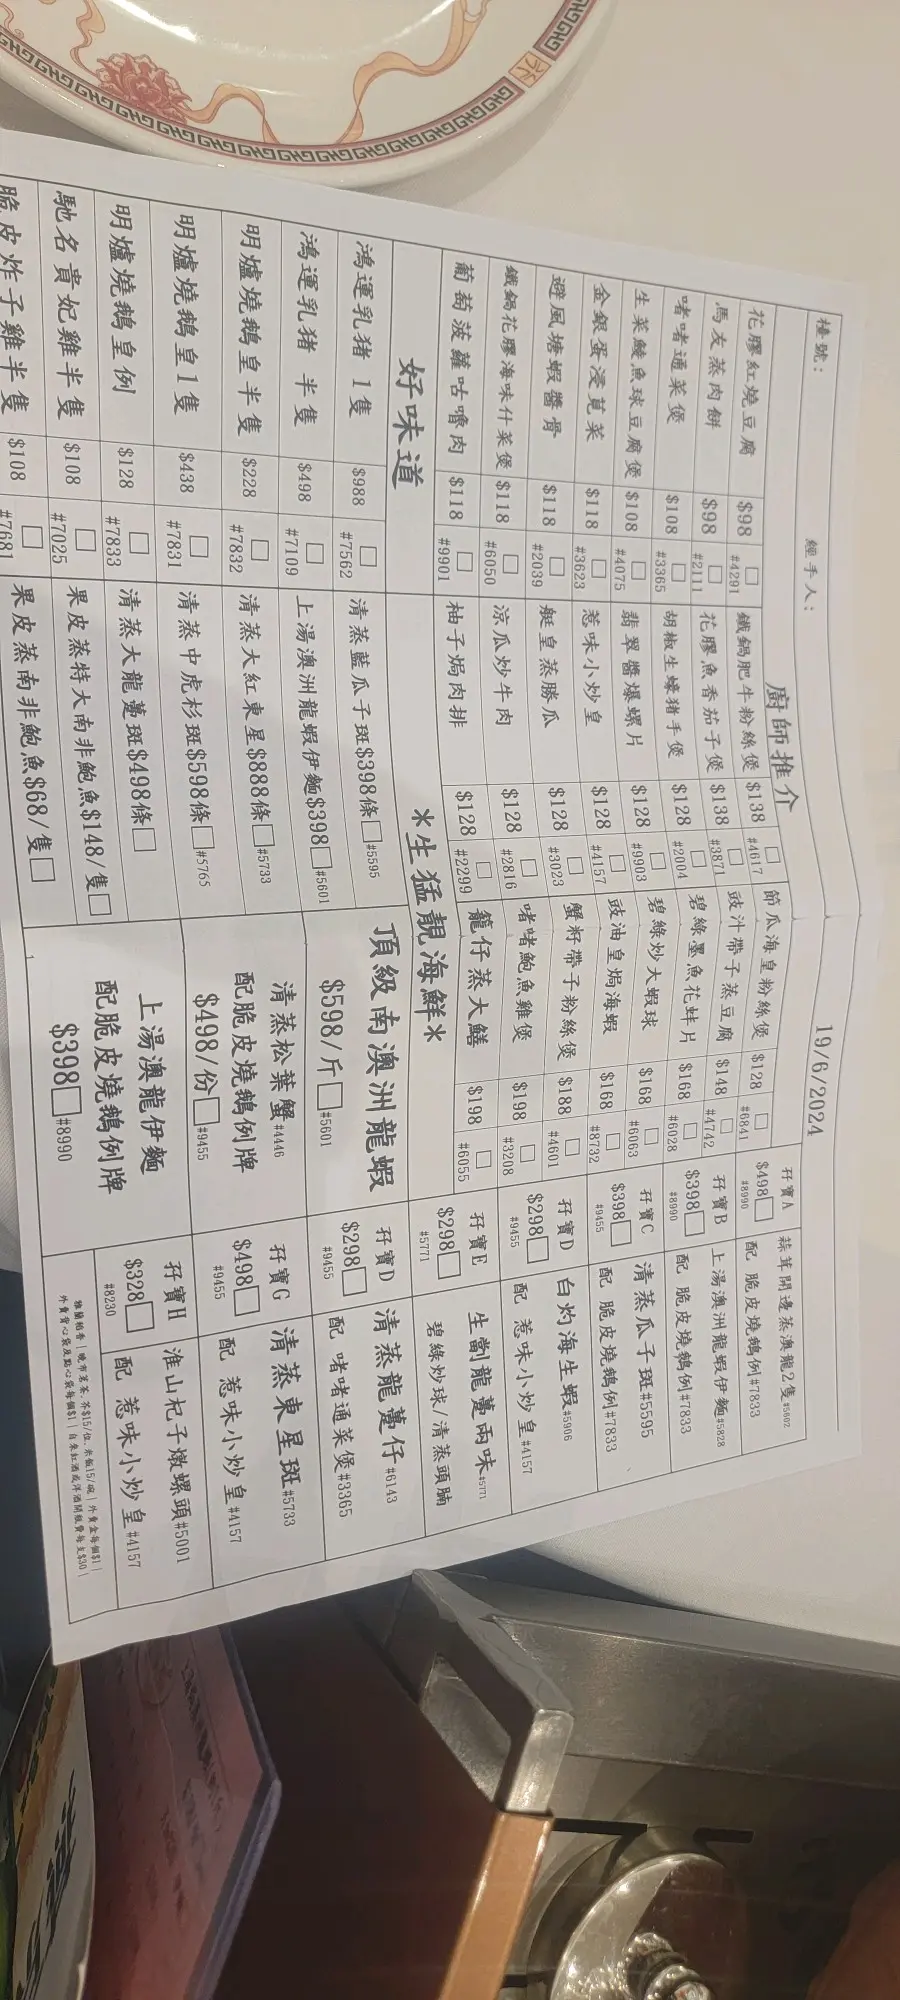 19/6/2024
檯號: 經手人:
廚師推介
花膠紅燒豆腐 $98 #4291 鐵鍋肥牛粉絲煲 $138 #4617 節瓜海皇粉絲煲 $128 #6841
馬友蒸肉餅 $98 #2111 花膠魚香茄子煲 $138 #3871 豉汁帶子蒸豆腐 $148 #4742
啫啫通菜煲 $108 #3365 胡椒生蠔豬手煲 $128 #2004 碧綠墨魚花蚌片 $168 #6028
生菜鯪魚球豆腐煲 $108 #4075 翡翠醬爆螺片 $128 #9903 碧綠炒大蝦球 $168 #6063
金銀蛋浸莧菜 $118 #3623 惹味小炒皇 $128 #4157 豉油皇焗海蝦 $168 #8732
避風塘蝦醬骨 $118 #2039 艇皇蒸勝瓜 $128 #3023 蟹籽帶子粉絲煲 $188 #4601
鐵鍋花膠海味什菜煲 $118 #6050 涼瓜炒牛肉 $128 #2816 啫啫鮑魚雞煲 $198 #3208
葡萄菠蘿咕嚕肉 $118 #9901 柚子焗肉排 $128 #2299 籠仔蒸大鱔 $198 #6055
好味道
鴻運乳豬 1隻 $988 #7562
鴻運乳豬 半隻 $498 #7109
明爐燒鵝皇半隻 $228 #7832
明爐燒鵝皇1隻 $438 #7831
明爐燒鵝皇例 $128 #7833
馳名貴妃雞半隻 $108 #7025
脆皮炸子雞半隻 $108 #7681
*生猛靚海鮮*
清蒸藍瓜子斑$398條 #5595
上湯澳洲龍蝦伊麵$398 #5601
清蒸大紅東星$888條 #5733
清蒸中虎杉斑$598條 #5765
清蒸大龍躉斑$498條
果皮蒸特大南非鮑魚$148/隻
果皮蒸南非鮑魚$68/隻
頂級南澳洲龍蝦
$598/斤 #5601
清蒸松葉蟹 #4446
配脆皮燒鵝例牌
$498/份 #9455
上湯澳龍伊麵
配脆皮燒鵝例牌
$398 #8990
孖寶A 蒜茸開邊蒸澳龍2隻 #5602
$498 #8990 配 脆皮燒鵝例#7833
孖寶B 上湯澳洲龍蝦伊麵#5828
$398 #8990 配 脆皮燒鵝例#7833
孖寶C 清蒸瓜子斑#5595
$398 #9455 配 脆皮燒鵝例#7833
孖寶D 白灼海生蝦#5906
$298 #9455 配 惹味小炒皇#4157
孖寶E 生劏龍躉兩味#5771
$298 #5771 碧綠炒球/清蒸頭腩
孖寶D 清蒸龍躉仔#6143
$298 #9455 配 啫啫通菜煲#3365
孖寶G 清蒸東星斑#5733
$498 #9455 配 惹味小炒皇#4157
孖寶H 淮山杞子燉螺頭#5001
$328 #8230 配 惹味小炒皇#4157
1